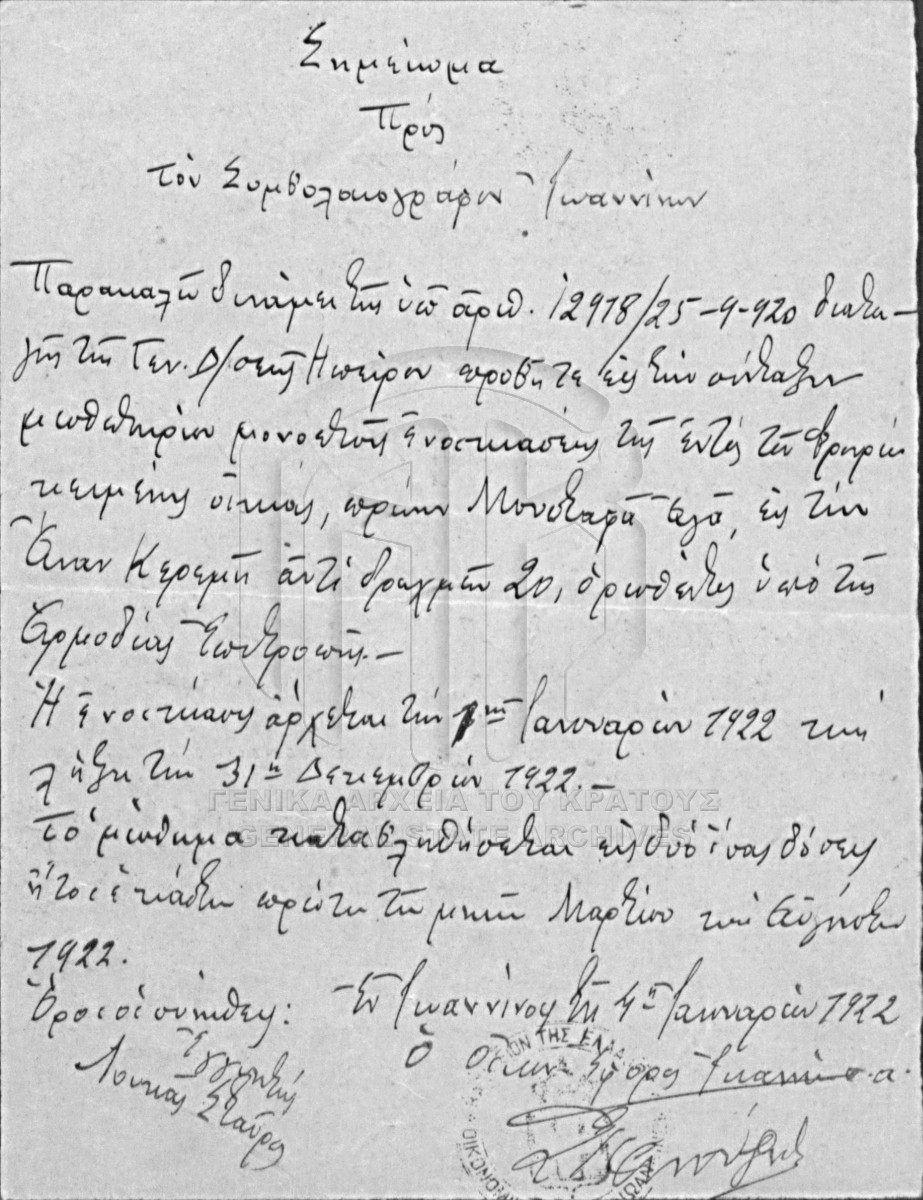 Σημείωμα
Πρός
τὸν Συμβολαιογράφον Ἰωαννίνων
Παρακαλῶ δυνάμει τῆς ὑπ' ἀριθ. 12918/25-9-920 διατα-
γῆς τῆς Γεν. Δ/σεως Ἠπείρου προβῆτε εἰς τὴν σύνταξιν
μισθωτηρίου μονοετοῦς ἐνοικιάσεως τῆς ἐντὸς τοῦ Φρουρίου
κειμένης οἰκίας, πρώην Μουσταφᾶ Ἀγᾶ, εἰς τὴν
Κερεμὴ ἀντὶ δραχμῶν 20, ὁρισθέντος ὑπὸ τῆς
Ἁρμοδίας Ἐπιτροπῆς.-
Ἡ ἐνοικίασις ἄρχεται τὴν 1ην Ἰανουαρίου 1922 καὶ
λήξῃ τὴν 31η Δεκεμβρίου 1922.-
Τὸ μίσθωμα καταβληθήσεται εἰς δύο ἴσας δόσεις
ἤτοι ἑκάστην πρώτην τῶν μηνῶν Μαρτίου καὶ Αὐγούστου
1922.
Ὅροι οἱ συνήθεις: Ἐν Ἰωαννίνοις τῇ 4ῃ Ἰανουαρίου 1922
Ὁ Οἰκον. Ἔφορος Ἰωαννίνων α.α.
Ἐγγυητὴς
Λουκᾶς Σταῦρος
ΓΕΝΙΚΑ ΑΡΧΕΙΑ ΤΟΥ ΚΡΑΤΟΥΣ
GENERAL STATE ARCHIVES